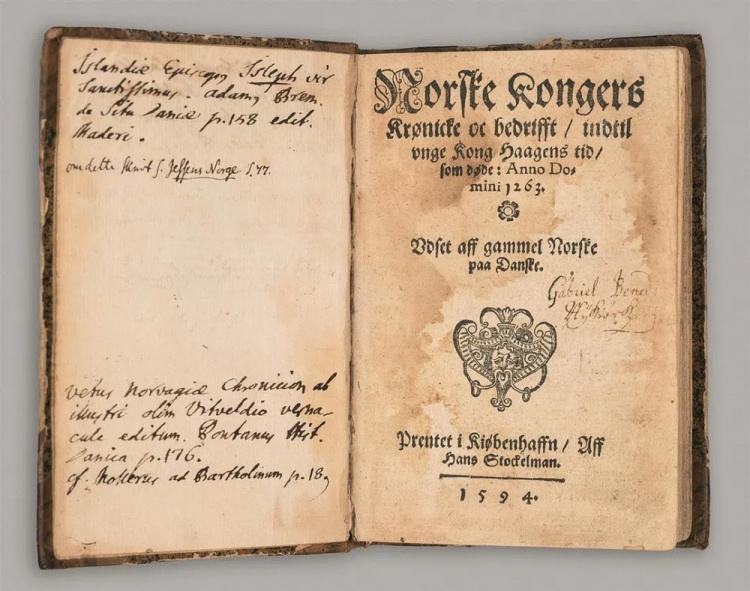 Islandiæ Episcop Isleph vir
Sanctissimus. adamq Brem.
de Situ Daniæ p.158 edit.
Maderi.
om dette skrivt s. Jessens Norge S. 77.
vetus Norvagiæ Chronicon ab
illustri olim Vitveldio verna-
cule editum. Pontanus Hist.
Danica p.176.
cf. Mollerus ad Bartholinum p.18
Norske Kongers
Krønicke oc bedrifft / indtil
vnge Kong Haagens tid /
som døde: Anno Do-
mini 1263.
Vdset aff gammel Norske
paa Danske.
Gabriel
Prentet i Kiøbenhaffn / Aff
Hans Stockelman.
1594.